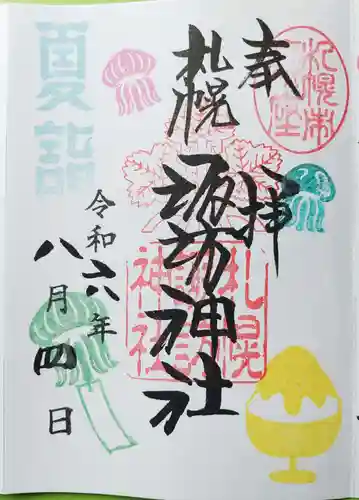 奉拝
札幌市
札幌諏訪神社
札幌諏訪神社
夏詣
令和六年
八月四日